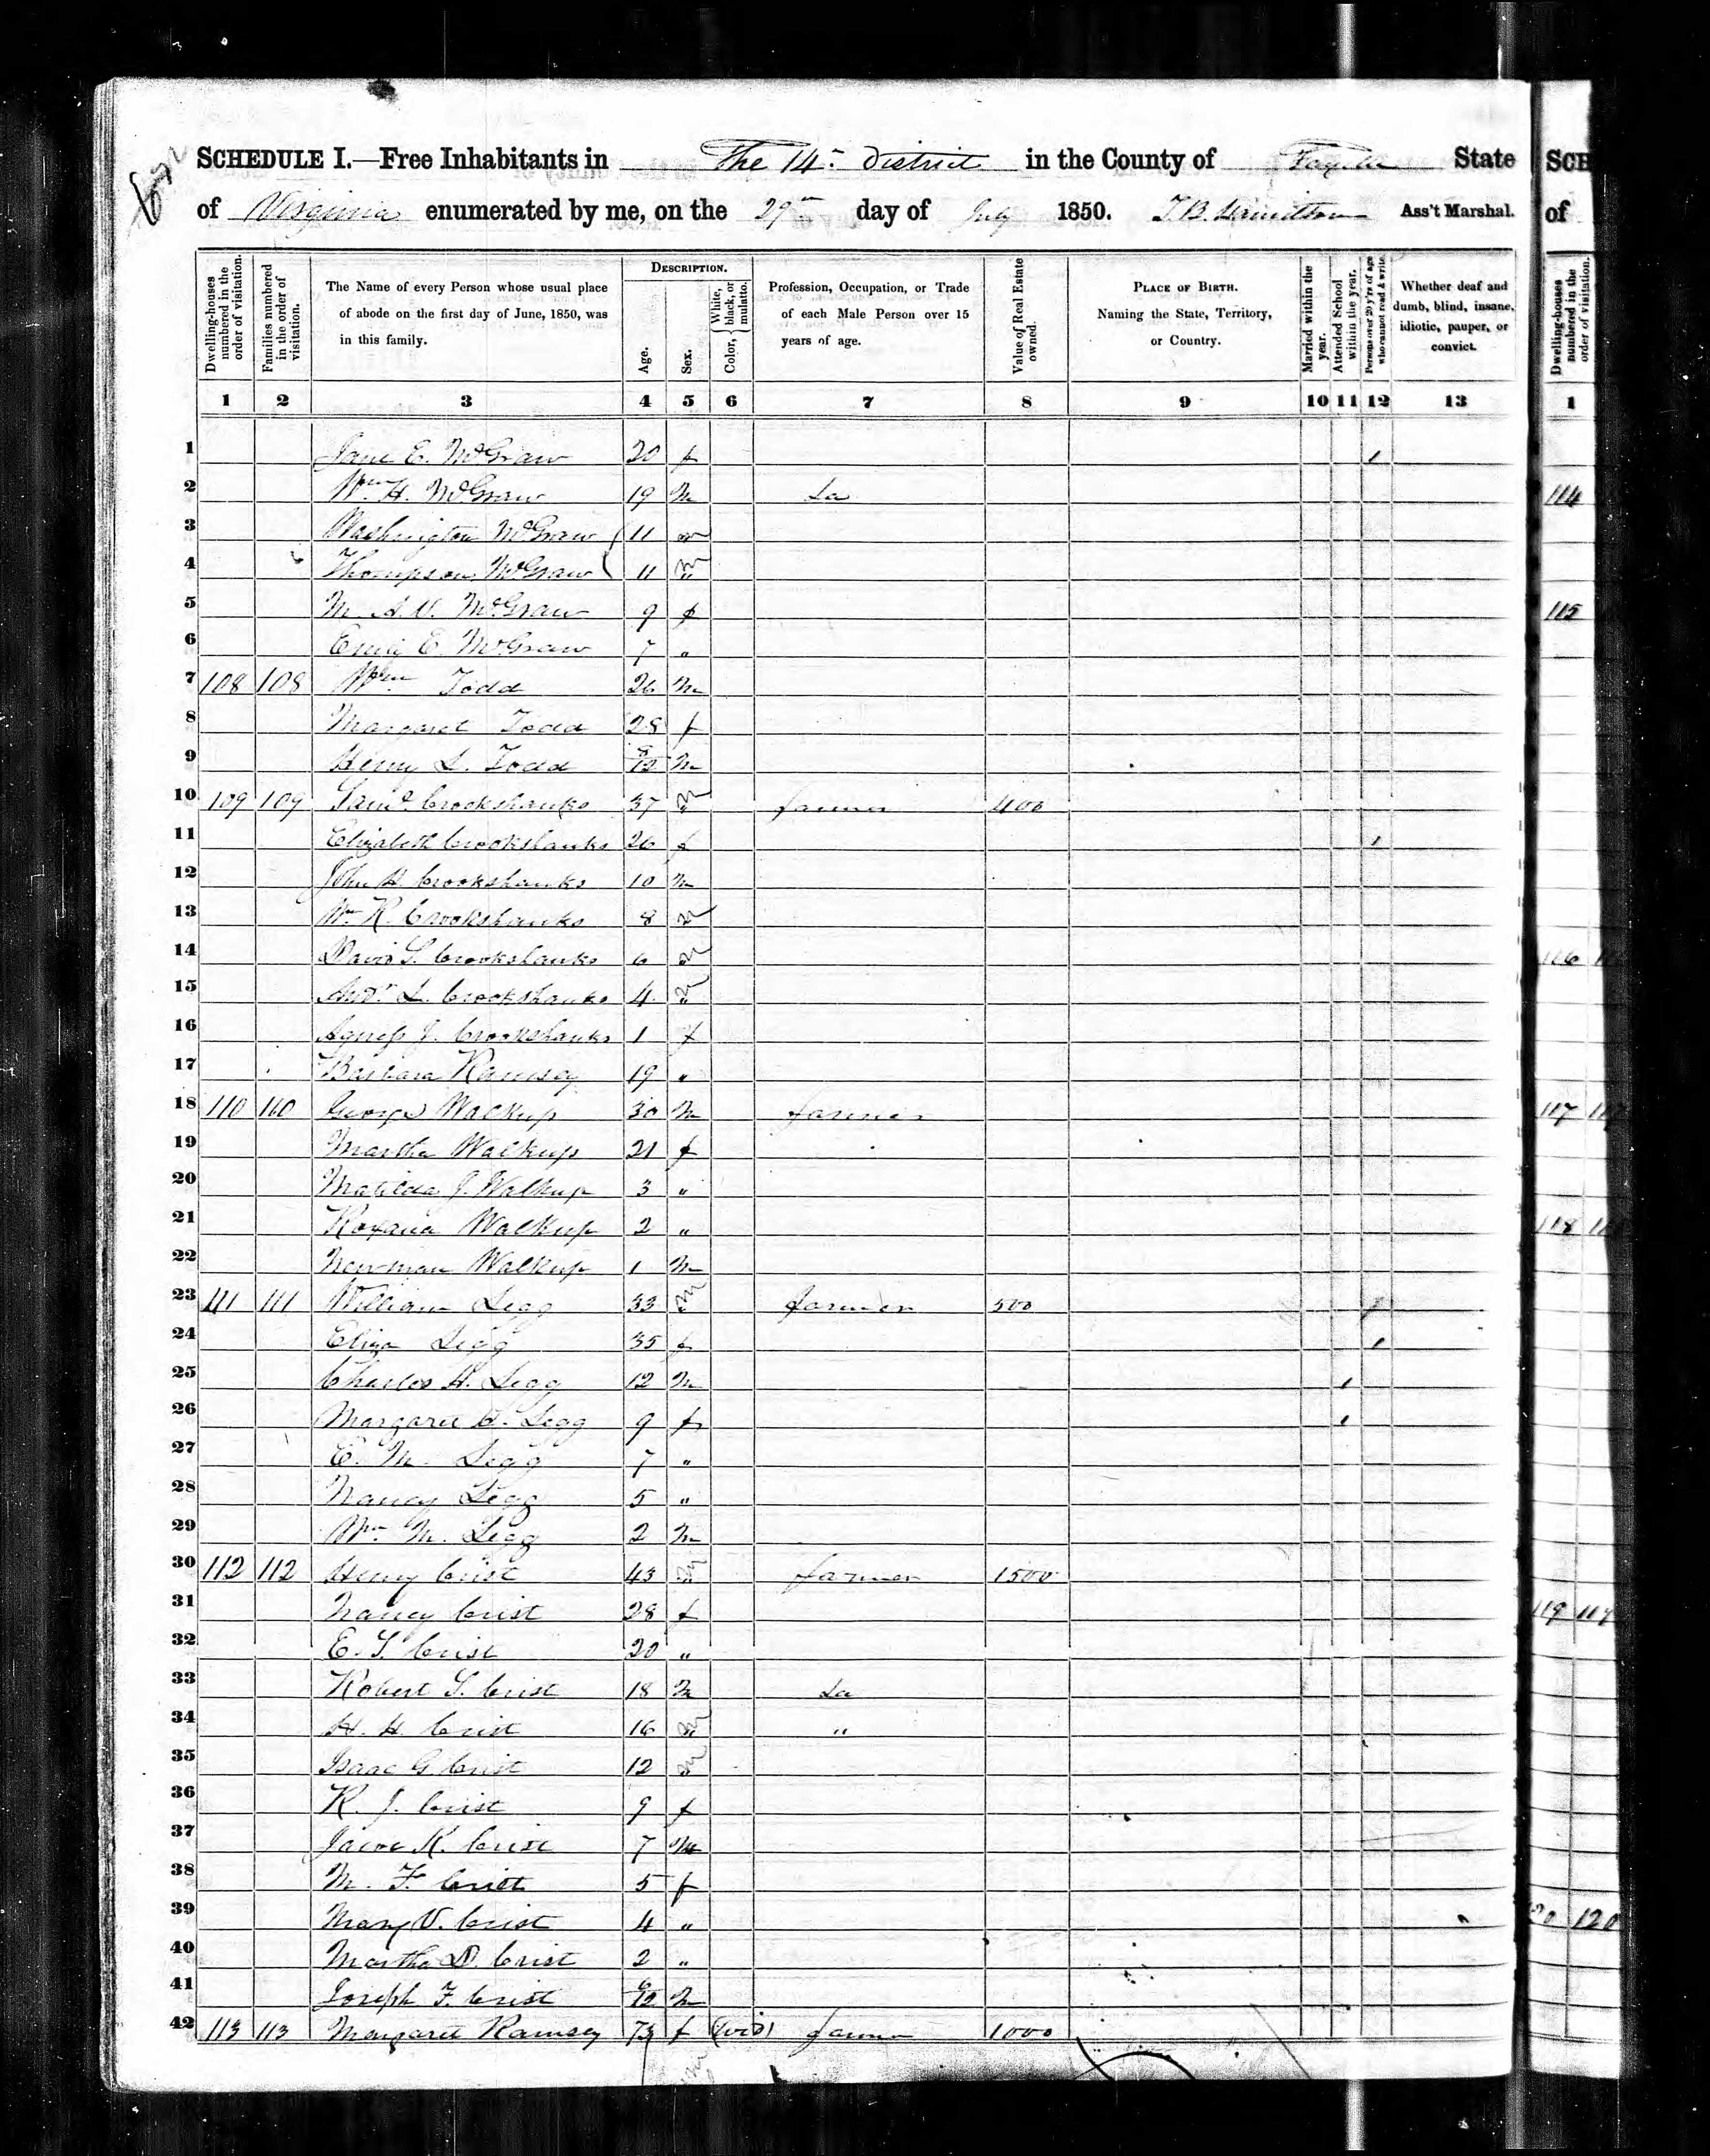 SCHEDULE I.—Free Inhabitants in The 14th District in the County of Fayette State
of Virginia enumerated by me, on the 29th day of July 1850. T. B. Hamilton Ass't Marshal.
Dwelling-houses numbered in the order of visitation.
Families numbered in the order of visitation.
The Name of every Person whose usual place of abode on the first day of June, 1850, was in this family.
DESCRIPTION.
Age.
Sex.
Color, { White, black, or mulatto.
Profession, Occupation, or Trade of each Male Person over 15 years of age.
Value of Real Estate owned.
PLACE OF BIRTH. Naming the State, Territory, or Country.
Married within the year.
Attended School within the year.
Persons over 20 y'rs of age who cannot read & write.
Whether deaf and dumb, blind, insane, idiotic, pauper, or convict.
1 2 3 4 5 6 7 8 9 10 11 12 13
1 Jane E. McGraw 20 f /
2 Wm H. McGraw 19 M La
3 Washington McGraw 11 m
4 Thompson McGraw 11 "
5 M. A. V. McGraw 9 f
6 Emily E. McGraw 7 "
7 108 108 Wm Todd 26 M
8 Margaret Todd 28 f
9 Henry L. Todd 8/12 M
10 109 109 Saml Crookshanks 37 " farmer 400
11 Elizabeth Crookshanks 26 f /
12 John H Crookshanks 10 M
13 Wm R. Crookshanks 8 "
14 David S. Crookshanks 6 "
15 Andw L. Crookshanks 4 "
16 Agness J. Crookshanks 1 f
17 Barbara Ramsey 19 "
18 110 110 George Walkup 30 M farmer
19 Martha Walkup 21 f
20 Matilda J. Walkup 3 "
21 Roxana Walkup 2 "
22 Newman Walkup 1 M
23 111 111 William Legg 33 " farmer 500 /
24 Eliza Legg 35 f /
25 Charles H. Legg 12 M /
26 Margaret Legg 9 f /
27 E. M. Legg 7 "
28 Nancy Legg 5 "
29 Wm M. Legg 2 M
30 112 112 Henry Crist 43 " farmer 1500
31 Nancy Crist 28 f
32 E. S. Crist 20 "
33 Robert S. Crist 18 M La
34 H. H. Crist 16 " "
35 Isaac G Crist 12 "
36 R. J. Crist 9 f
37 Jacob K. Crist 7 M
38 M. F. Crist 5 f
39 Mary V. Crist 4 "
40 Martha D. Crist 2 "
41 Joseph F. Crist 6/12 M
42 113 113 Margaret Ramsey 73 f (wid) farmer 1000
SCH
of
Dwelling-houses numbered in the order of visitation.
1
114
115
116
117
118
119
120